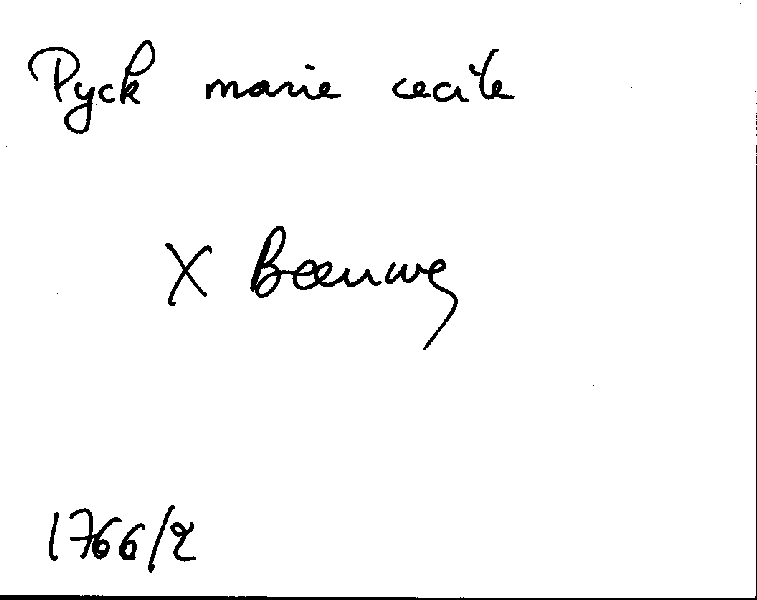 Pyck marie cecile
X Beeuwe
1766/2